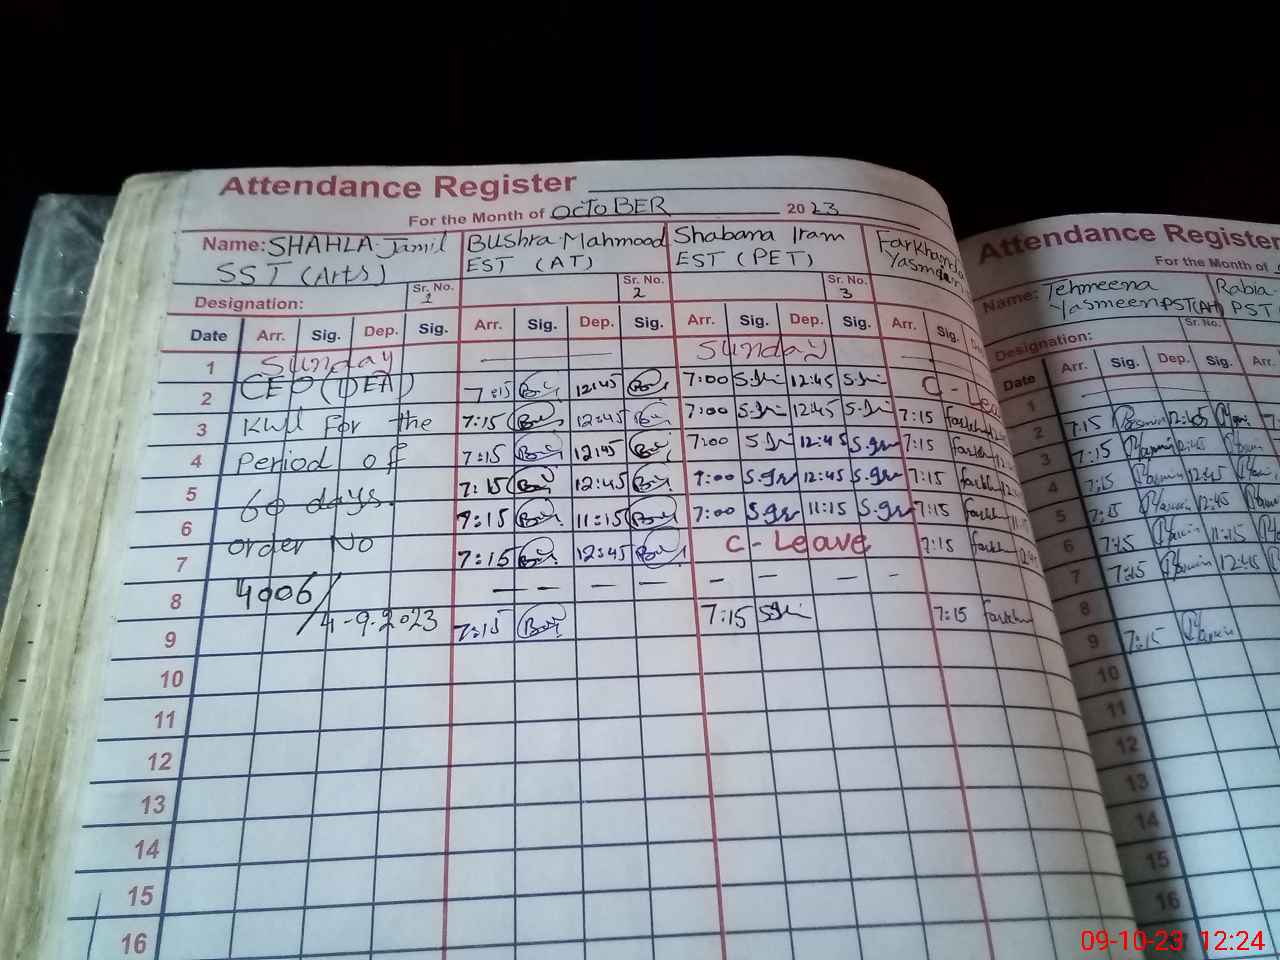 Attendance Register
For the Month of OCTOBER 2023
Name: SHAHLA Jamil
SST (Arts)
Designation:
Sr. No.
1
Bushra Mahmood
EST (AT)
Sr. No.
2
Shabana Iram
EST (PET)
Sr. No.
3
Farkhanda
Yasmeen
Date Arr. Sig. Dep. Sig. Arr. Sig. Dep. Sig. Arr. Sig. Dep. Sig. Arr. Sig.
1 Sunday Sunday
2 CEO (DEA) 7:15 12:45 7:00 12:45 C - Lea
3 KWL For the 7:15 12:45 7:00 12:45 7:15
4 Period of 7:15 12:45 7:00 12:45 7:15
5 60 days. 7:15 12:45 7:00 12:45 7:15
6 order No 7:15 11:15 7:00 11:15 7:15
7 7:15 12:45 C - Leave 7:15
8 4006/
9 4-9-2023 7:15 7:15 7:15
10
11
12
13
14
15
16
Attendance Register
For the Month of
Name: Tehmeena
Yasmeen PST(AH)
Designation:
Sr. No.
Rabia
PST
Date Arr. Sig. Dep. Sig. Arr.
1
2 7:15 12:45
3 7:15 12:45
4 7:15 12:45
5 7:15 12:45
6 7:15 11:15
7 7:15 12:45
8
9 7:15
10
11
12
13
14
15
16
09-10-23 12:24